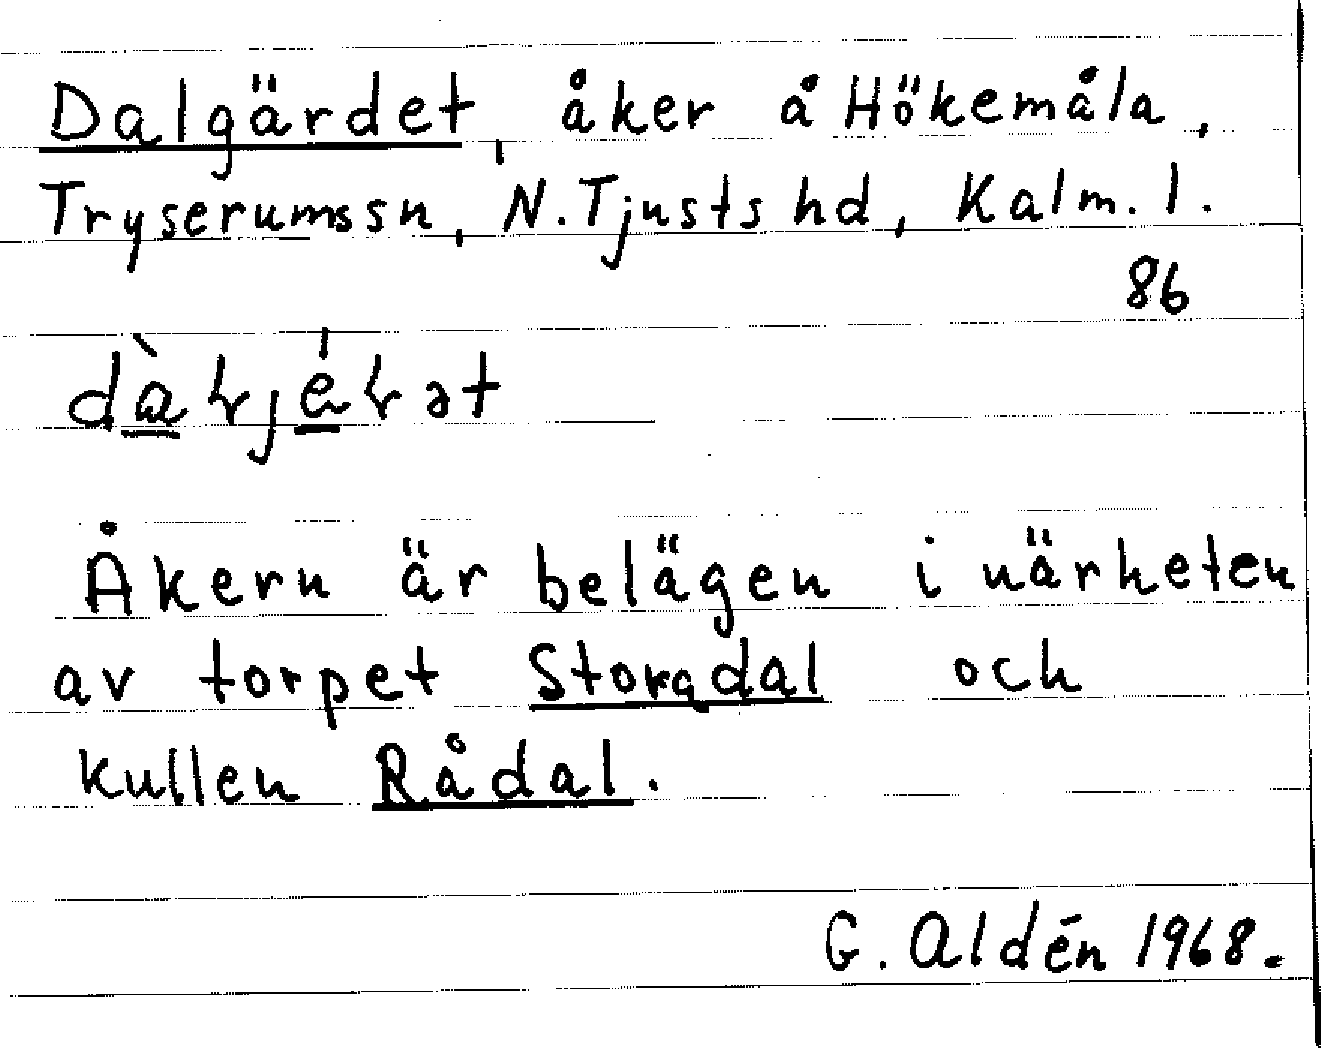 Dalgärdet, åker å Hökemåla,
Tryserumssn, N. Tjusts hd, Kalm. l.
86
Åkern är belägen i närheten
av torpet Storgdal och
kullen Rådal.
G. Aldén 1968.